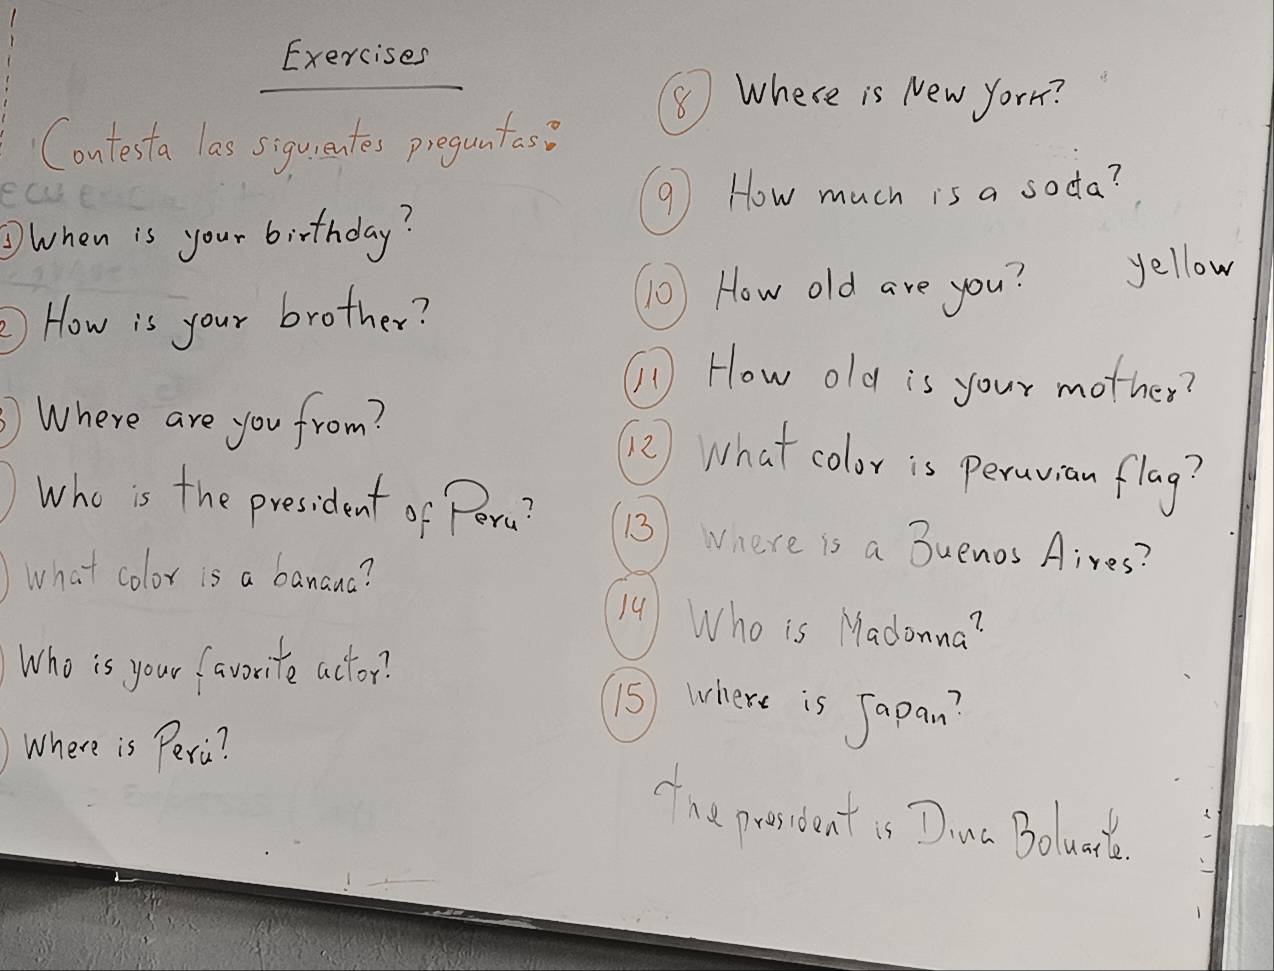 Exercises
Contesta las siguientes preguntas:
1 When is your birthday?
2 How is your brother?
3 Where are you from?
Who is the president of Peru?
What color is a banana?
Who is your favorite actor?
Where is Perú?
8 Where is New York?
9 How much is a soda?
10 How old are you?
yellow
11 How old is your mother?
12 What color is Peruvian flag?
13 Where is a Buenos Aires?
14 Who is Madonna?
15 Where is Japan?
The president is Dina Boluarte.